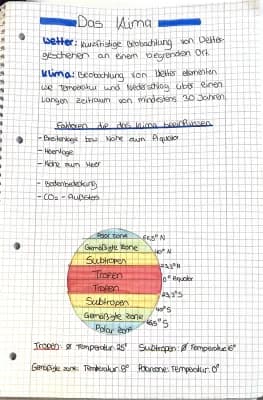 Das Klima
Wetter: Kurzfristige Beobachtung von Wetter-
geschehen an einem begrenzten Ort.
Klima: Beobachtung von Wetter elementen
wie Temperatur und Niederschlag über einen
Langen Zeitraum von mindestens 30 Jahren.
Faktoren die das Klima beeinflussen
- Breitenlage bzw. Nähe zum Äquator
- Höhenlage
- Nähe zum Meer
- Bodenbedeckung
- CO₂ - Ausstoß
Polar Zone 66,5° N
Gemäßigte Zone 40° N
Subtropen 23,5° N
Tropen 0° Äquator
Tropen
Subtropen 23,5° S
Gemäßigte Zone 40° S
Polar Zone 66,5° S
Tropen: Ø Temperatur: 25° Subtropen: Ø Temperatur: 16°
Gemäßigte Zone: Temperatur: 8° Polarzone: Temperatur: 0°